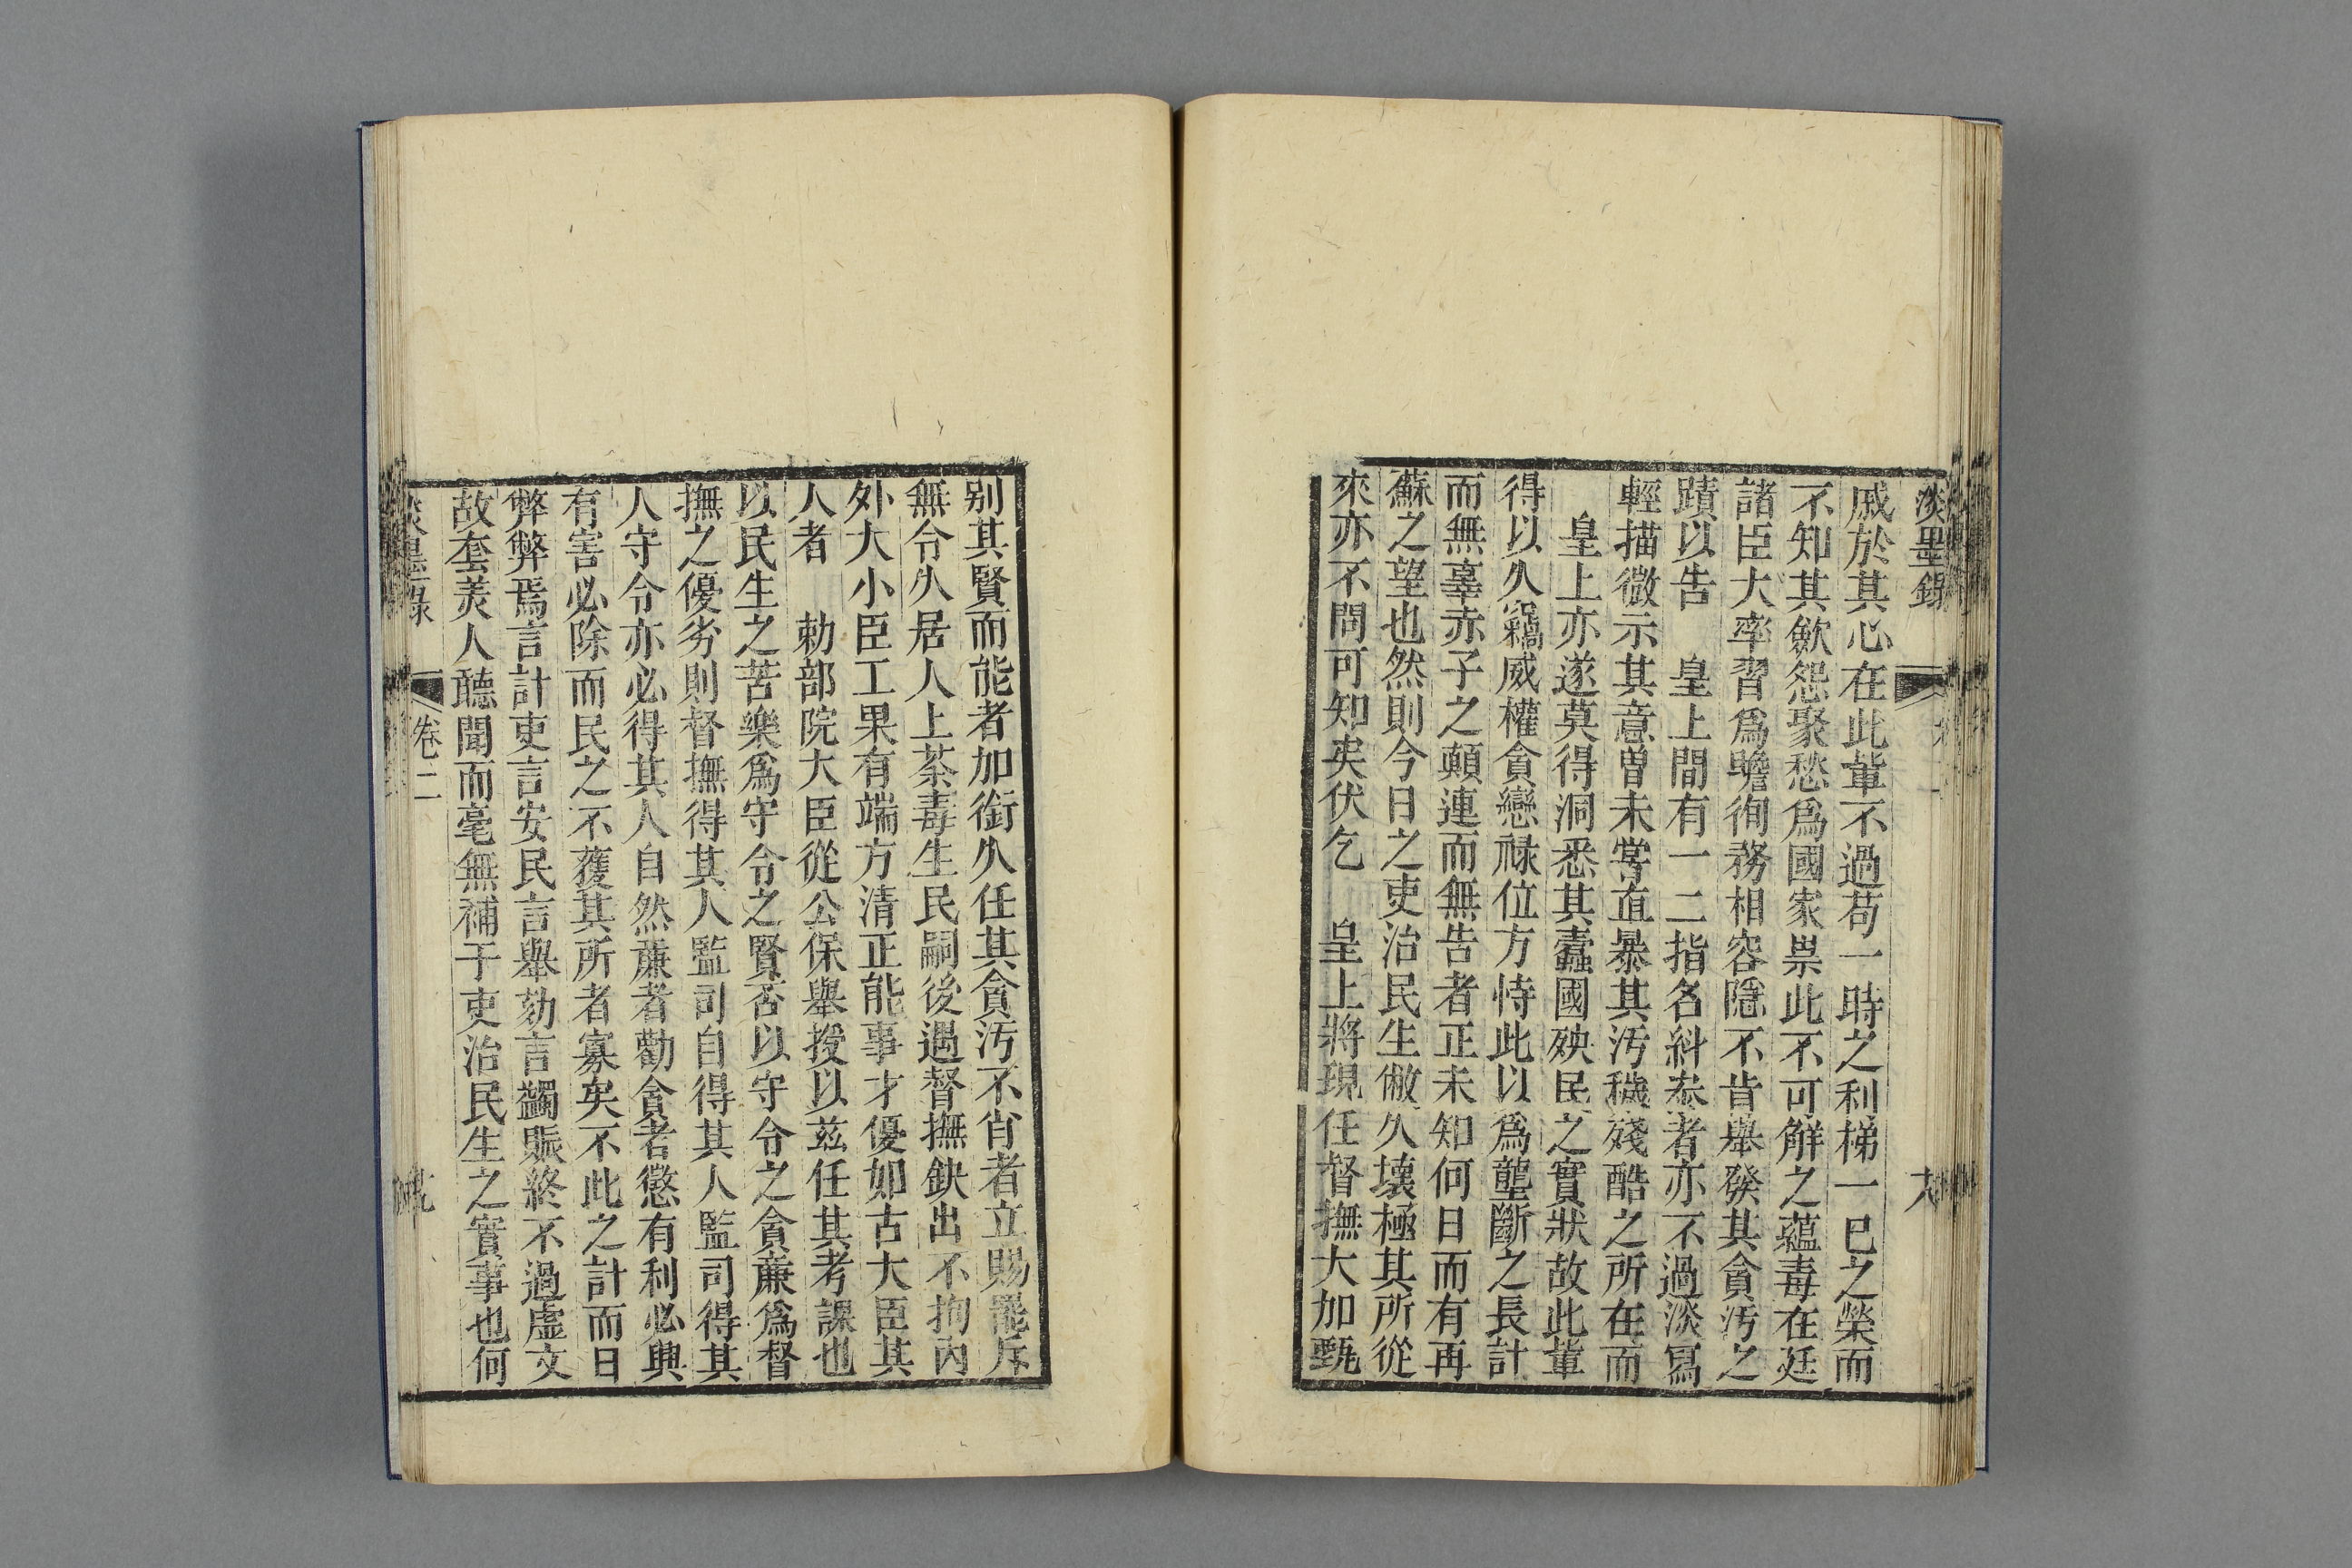 淡墨錄
戚於其心在此輩不過苟一時之利梯一已之榮而
不知其歛怨聚愁爲國家祟此不可解之蘊毒在廷
諸臣大率習爲瞻徇務相容隱不肯舉發其貪汚之
蹟以告　皇上間有一二指名糾叅者亦不過淡寫
輕描微示其意曽未嘗直暴其汚穢殘酷之所在而
皇上亦遂莫得洞悉其蠹國殃民之實狀故此輩
得以久竊威權貪戀祿位方恃此以爲壟斷之長計
而無辜赤子之顛連而無告者正未知何日而有再
蘇之望也然則今日之吏治民生儆久壞極其所從
來亦不問可知矣伏乞　皇上將現任督撫大加甄
别其賢而能者加銜久任其貪汚不肖者立賜罷斥
無令久居人上荼毒生民嗣後遇督撫鈌出不拘內
外大小臣工果有端方清正能事才優如古大臣其
人者　勅部院大臣從公保舉授以兹任其考課也
以民生之苦樂爲守令之賢否以守令之貪廉爲督
撫之優劣則督撫得其人監司自得其人監司得其
人守令亦必得其人自然廉者勸貪者懲有利必興
有害必除而民之不獲其所者寡矣不此之計而日
弊弊焉言計吏言安民言舉劾言蠲賑終不過虛文
故套羙人聽聞而毫無補于吏治民生之實事也何
淡墨錄
卷二